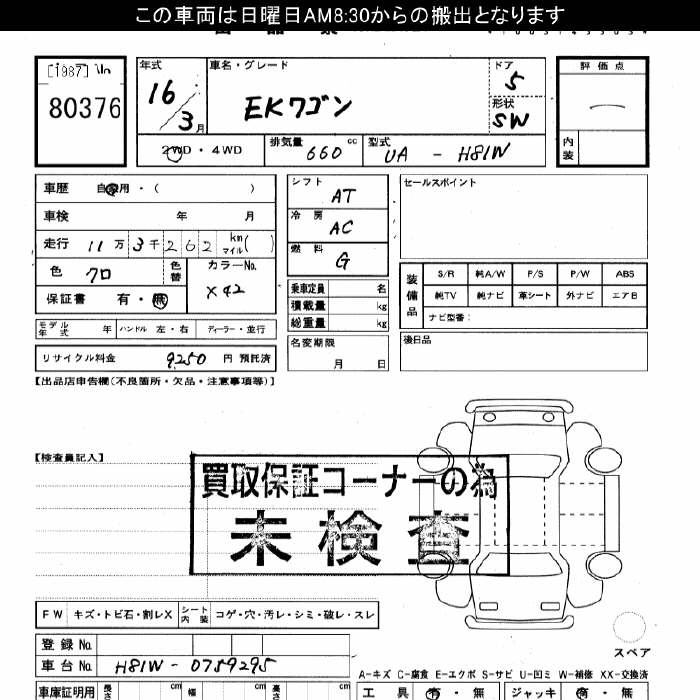 この車両は日曜日AM8:30からの搬出となります
[1987]
80376
年式 車名・グレード ドア 評価点
16/3月 EKワゴン 5
形状 SW
2WD・4WD 排気量 660 cc 型式 UA - H81W 内装
車歴 自家用・( ) シフト AT セールスポイント
車検 年 月 冷房 AC
走行 11万3千262 km マイル( ) 燃料 G
色 クロ 色替 カラーNo. X42 乗車定員 名 装備品 S/R 純A/W P/S P/W ABS
保証書 有・無 積載量 kg 純TV 純ナビ 革シート 外ナビ エアB
総重量 kg ナビ型番:
モデル年式 年 ハンドル 左・右 ディーラー・並行 名変期限 月 日 後日品
リサイクル料金 9250 円 預託済
【出品店申告欄(不良箇所・欠品・注意事項等)】
【検査員記入】
買取保証コーナーの為
未検査
FW キズ・トビ石・割レX シート内装 コゲ・穴・汚レ・シミ・破レ・スレ
スペア
登録No.
車台No. H81W-0759295
A-キズ C-腐食 E-エクボ S-サビ U-凹ミ W-補修 XX-交換済
車庫証明用 長さ cm 幅 cm 高さ cm 工具 有・無 ジャッキ 有・無